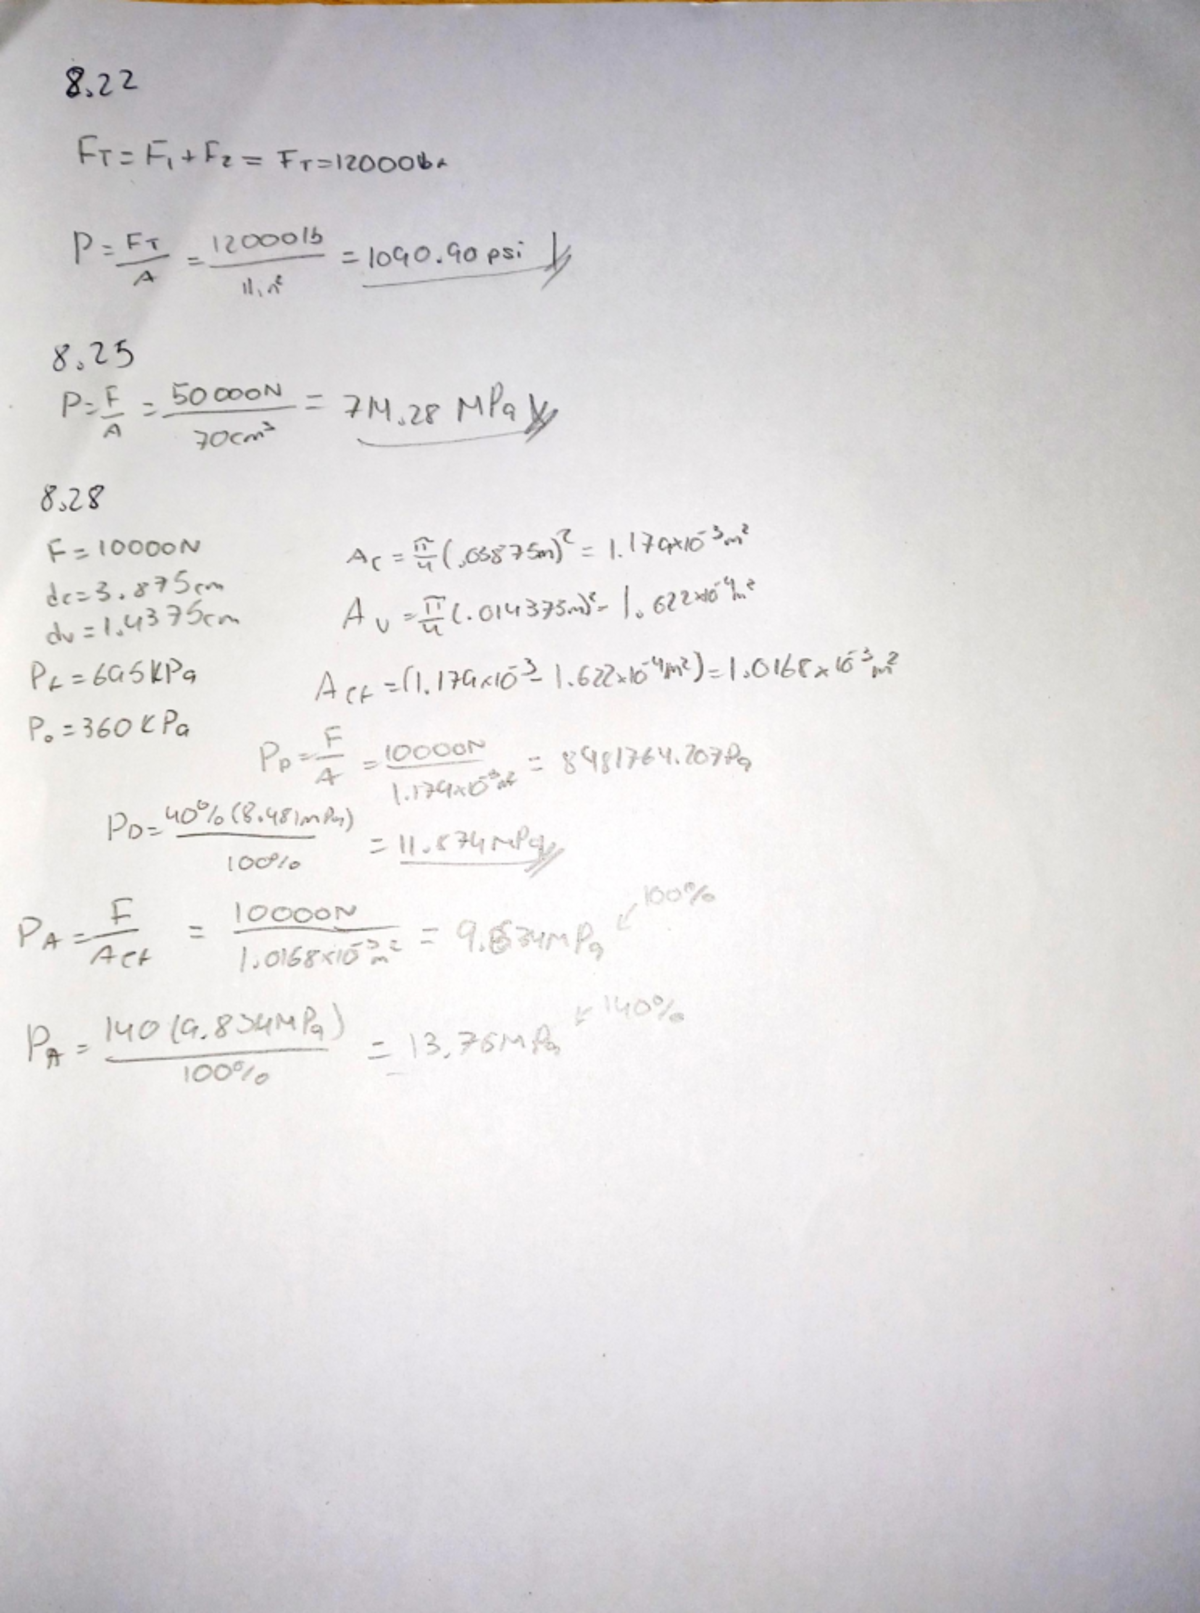 8.22
FT = F1 + F2 = FT = 12000lb
P = FT/A = 12000lb/11in² = 1090.90 psi
8.25
P = F/A = 50000N/70cm³ = 714.28 MPa
8.28
F = 10000N
dc = 3.875cm
dv = 1.4375cm
Pf = 695kPa
Po = 360kPa
Ac = π/4 (.03875m)² = 1.179x10⁻³m²
Av = π/4 (.014375m)² = 1.622x10⁻⁴m²
Acf = (1.179x10⁻³ - 1.622x10⁻⁴m²) = 1.0168x10⁻³m²
PD = F/A = 10000N/1.179x10⁻³m² = 8481764.207Pa
PD = 40%(8.481mPa)/100% = 11.874MPa
PA = F/Acf = 10000N/1.0168x10⁻³m² = 9.834MPa ↙ 100%
PA = 140(9.834MPa)/100% = 13.76MPa ↙ 140%